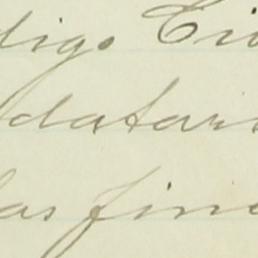 digo Civ
datari
las finc